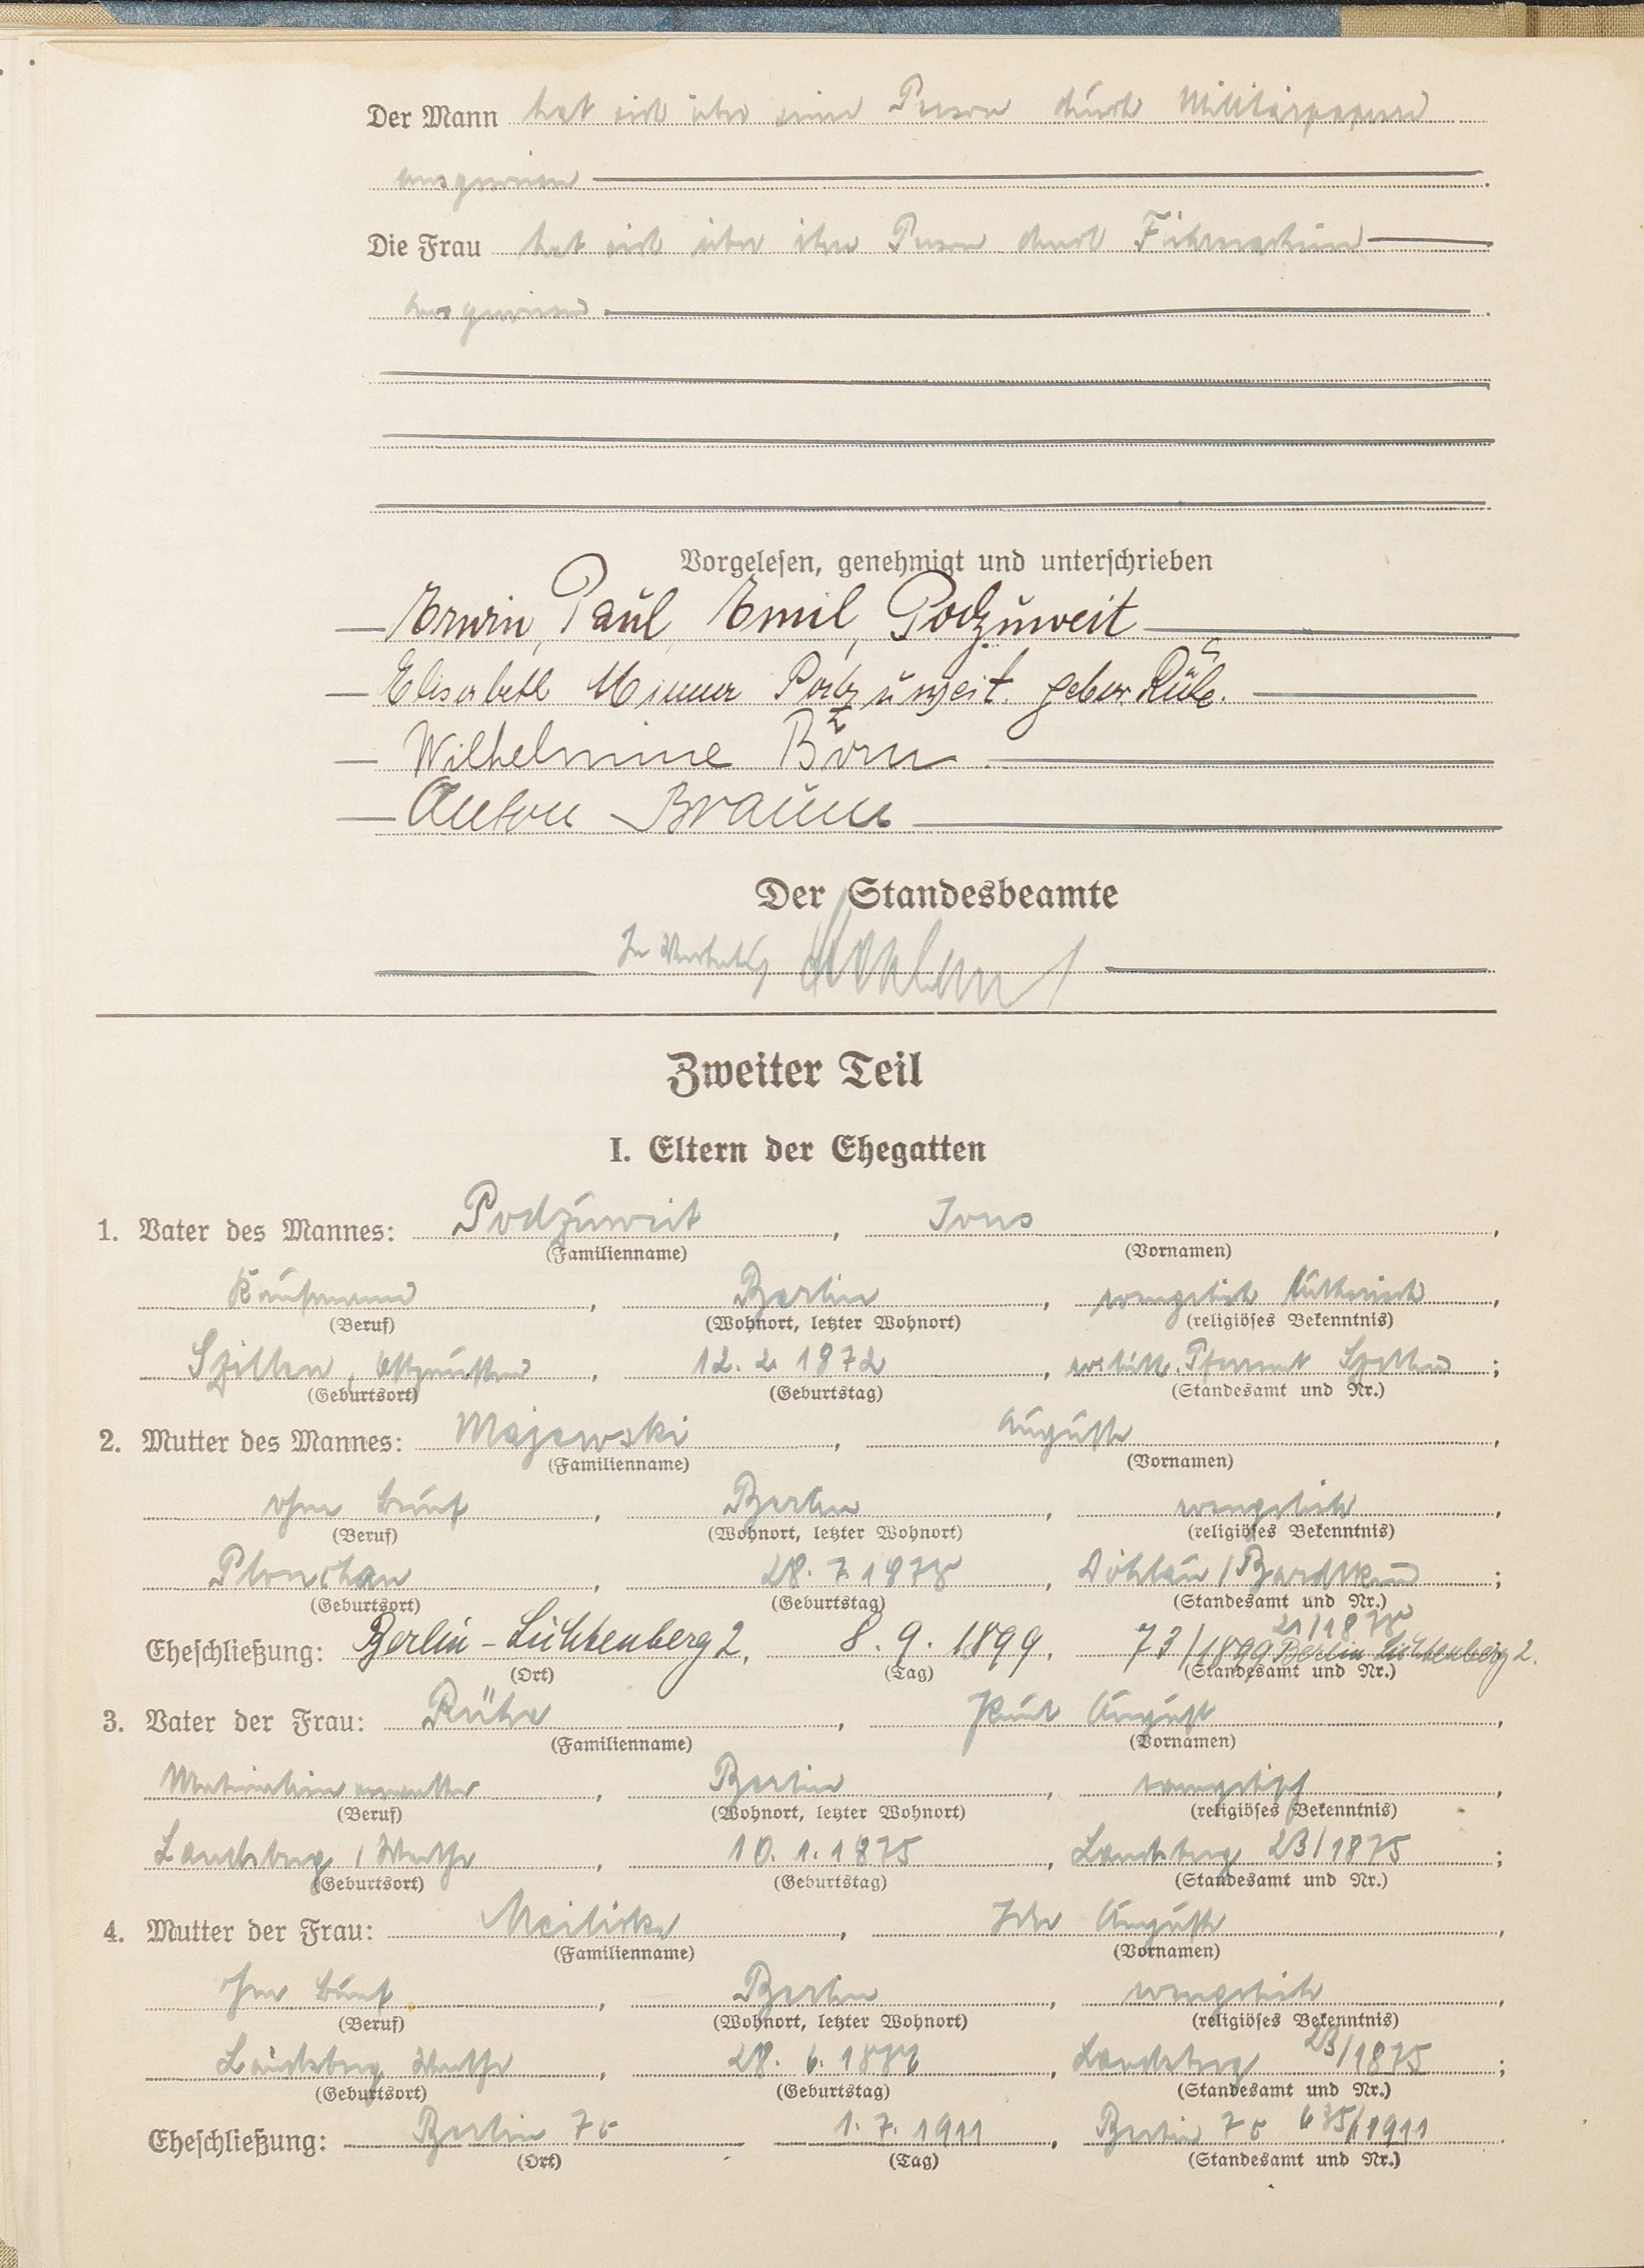 Der Mann hat sich über seine Person durch Militärpapiere
ausgewiesen
Die Frau hat sich über ihre Person durch Führerschein
ausgewiesen
Vorgelesen, genehmigt und unterschrieben
Erwin, Paul, Emil, Podzuweit
Elisabeth Minna Podzuweit gebor. Rühe.
Wilhelmine Born
Anton Braun
Der Standesbeamte
In Vertretung
Zweiter Teil
I. Eltern der Ehegatten
1. Vater des Mannes: Podzuweit, Jons,
(Familienname) (Vornamen)
Kaufmann, Berlin, evangelisch lutherisch,
(Beruf) (Wohnort, letzter Wohnort) (religiöses Bekenntnis)
Szillen, Ostpreußen, 12. 2. 1872, Pfarramt Szillen;
(Geburtsort) (Geburtstag) (Standesamt und Nr.)
2. Mutter des Mannes: Majewski, Auguste,
(Familienname) (Vornamen)
ohne Beruf, Berlin, evangelisch,
(Beruf) (Wohnort, letzter Wohnort) (religiöses Bekenntnis)
28. 7. 1878, Döhlau /;
(Geburtsort) (Geburtstag) (Standesamt und Nr.)
21/1878
Eheschließung: Berlin-Lichtenberg 2, 8. 9. 1899, 73/1899 Berlin Lichtenberg 2.
(Ort) (Tag) (Standesamt und Nr.)
3. Vater der Frau: Rühe, Paul August,
(Familienname) (Vornamen)
Materialienverwalter, Berlin, evangelisch,
(Beruf) (Wohnort, letzter Wohnort) (religiöses Bekenntnis)
Landsberg / Warthe, 10. 1. 1875, Landsberg 23/1875;
(Geburtsort) (Geburtstag) (Standesamt und Nr.)
4. Mutter der Frau: Auguste,
(Familienname) (Vornamen)
ohne Beruf, Berlin, evangelisch,
(Beruf) (Wohnort, letzter Wohnort) (religiöses Bekenntnis)
Landsberg Warthe, 28. 6., Landsberg 23/1875;
(Geburtsort) (Geburtstag) (Standesamt und Nr.)
Eheschließung: Berlin 7c, 1. 7. 1911, Berlin 7c 635/1911
(Ort) (Tag) (Standesamt und Nr.)